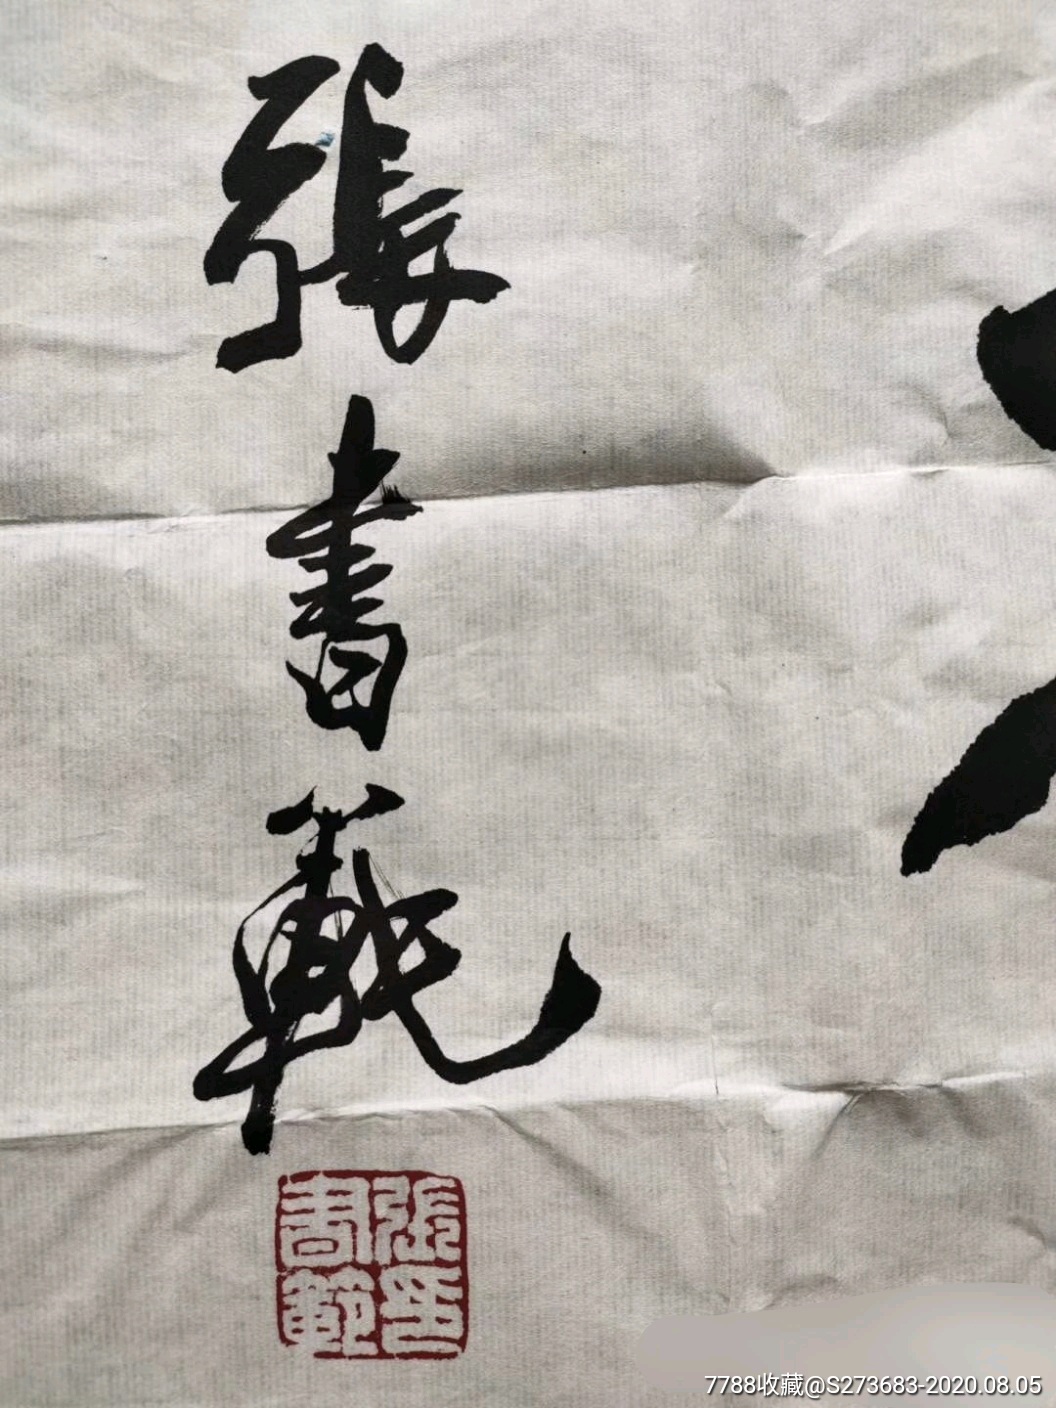 張書範
張印書範
7788收藏@S273683-2020.08.05